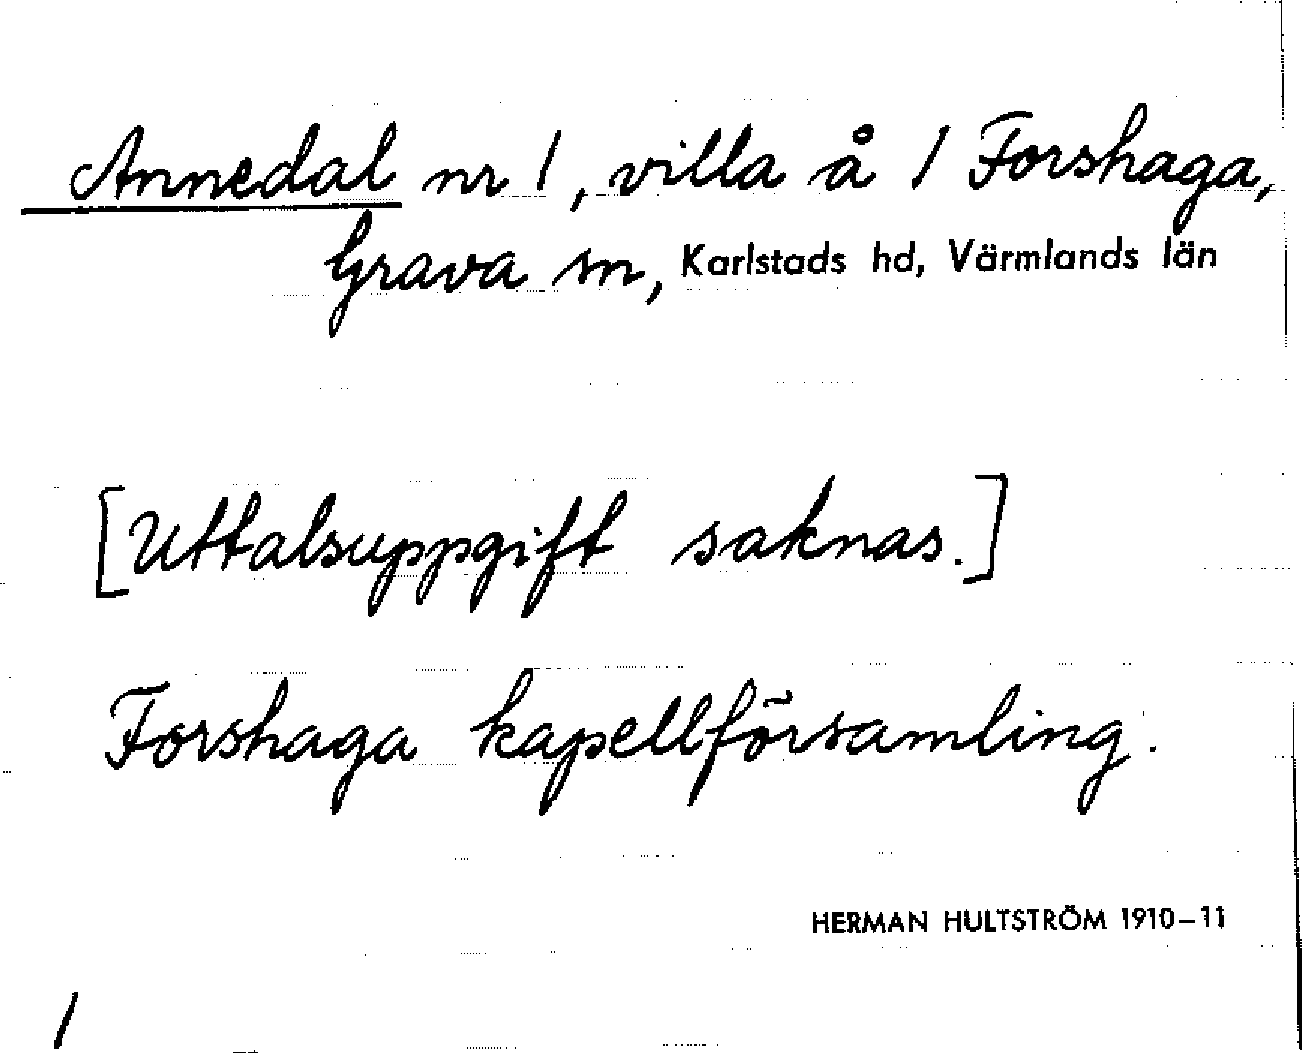 Annedal nr 1, villa å 1 Forshaga,
Grava sn, Karlstads hd, Värmlands län
[Uttalsuppgift saknas.]
Forshaga kapellförsamling.
HERMAN HULTSTRÖM 1910–11
1